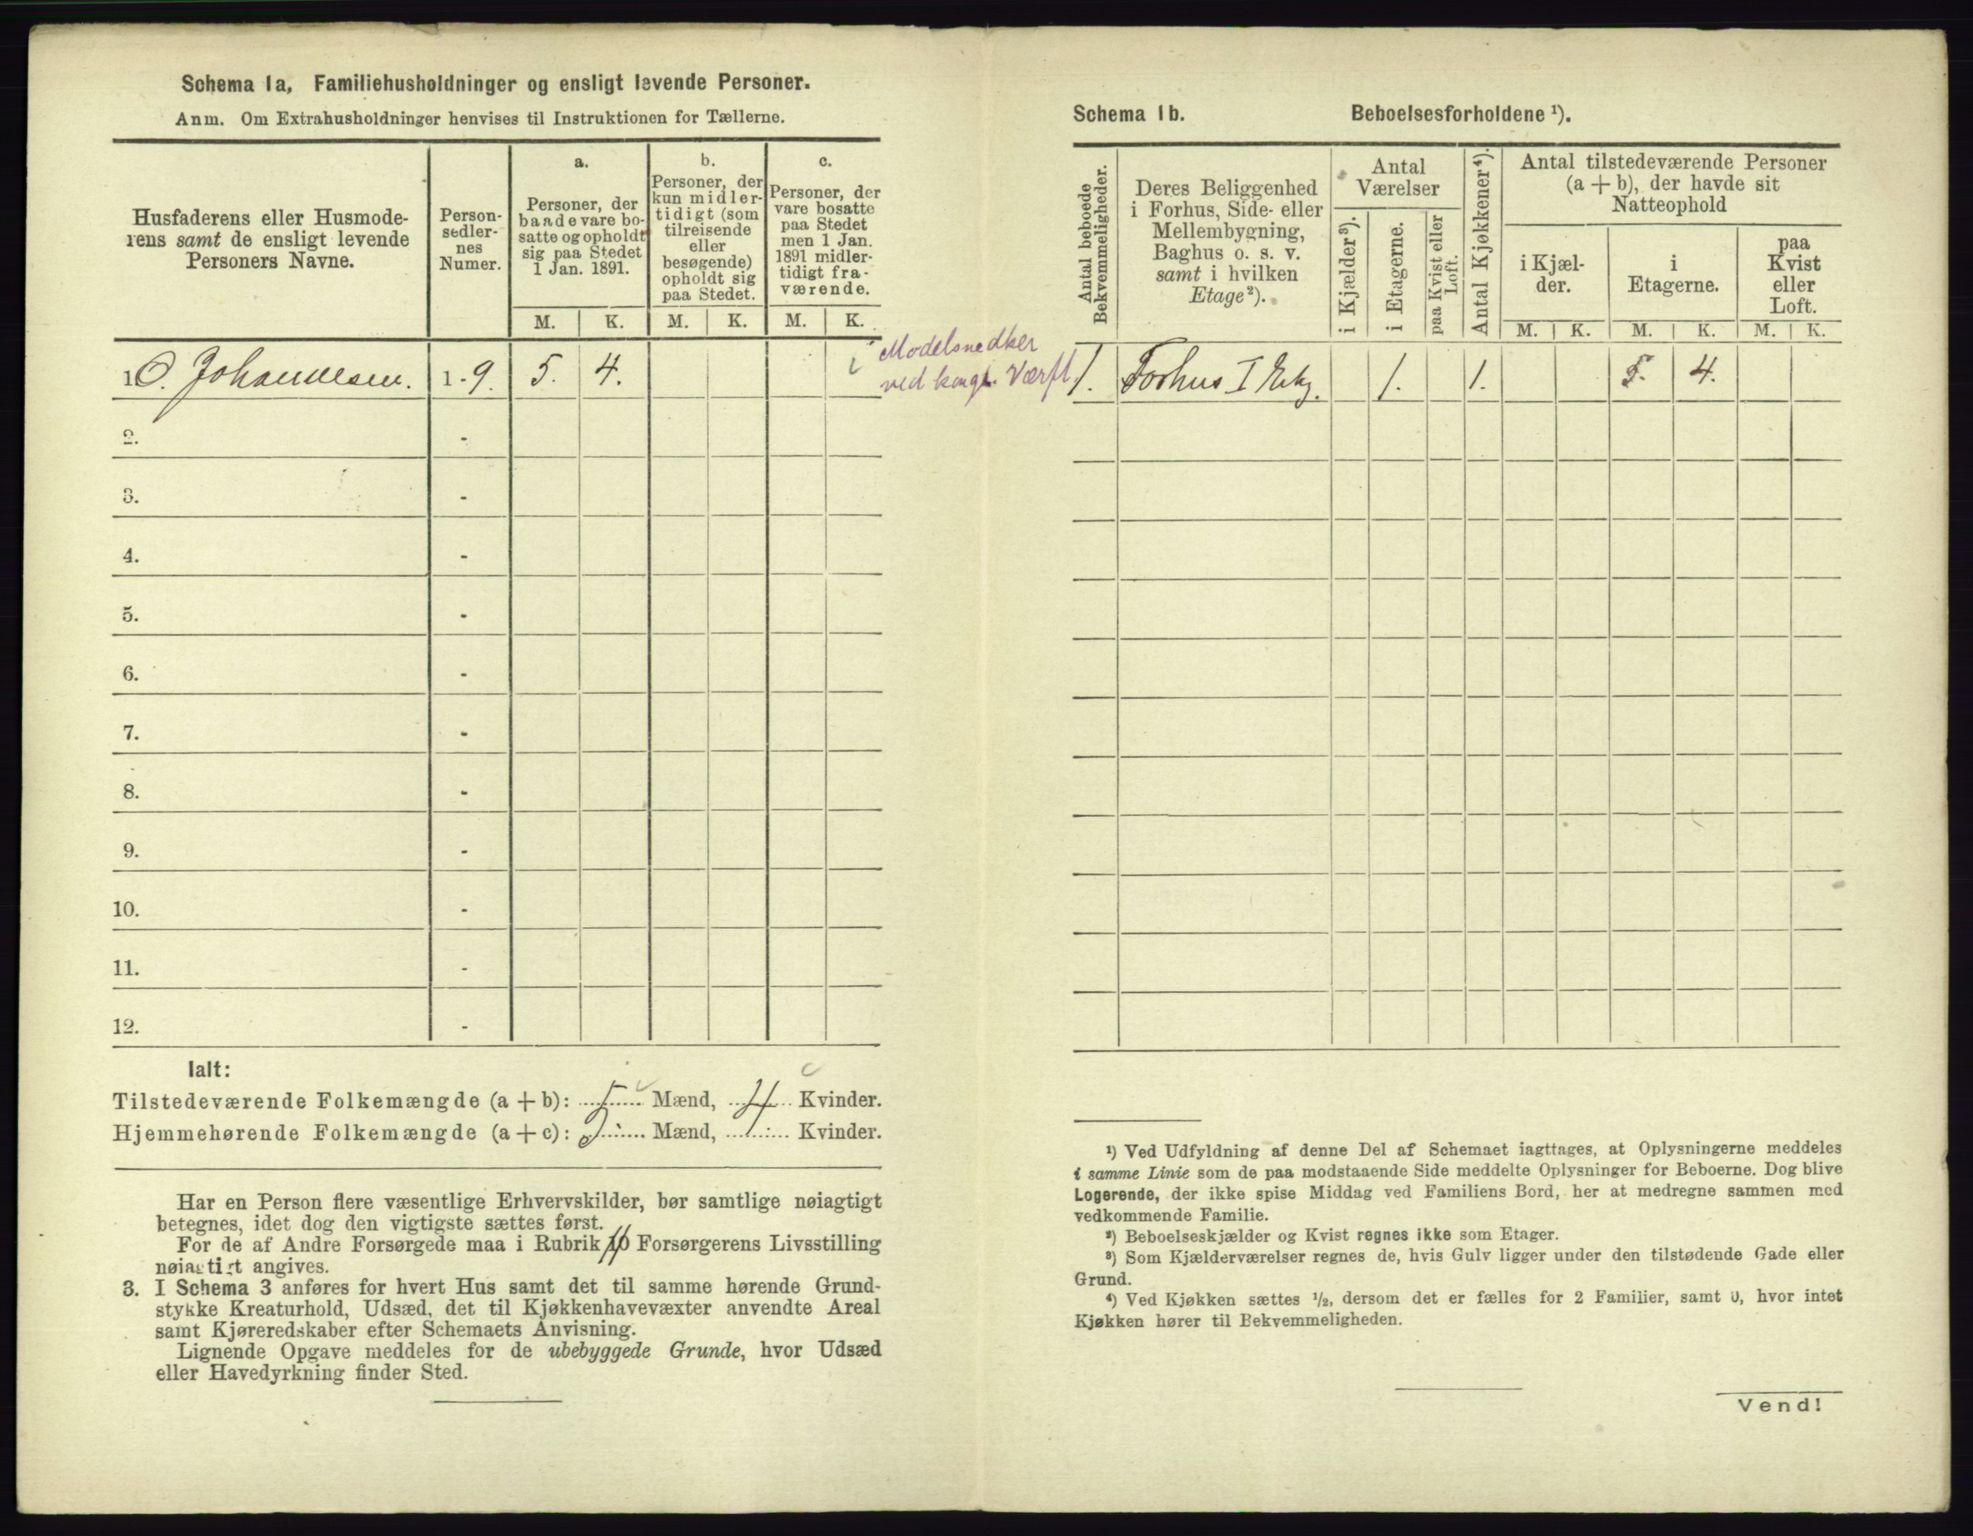 Schema 1a, Familiehusholdninger og ensligt levende Personer.
Anm. Om Extrahusholdninger henvises til Instruktionen for Tællerne.
Husfaderens eller Husmode-
rens samt de ensligt levende
Personers Navne.
Person-
sedler-
nes
Numer.
a.
Personer, der
baade vare bo-
satte og opholdt
sig paa Stedet
1 Jan. 1891.
b.
Personer, der
kun midler-
tidigt (som
tilreisende
eller
besøgende)
opholdt sig
paa Stedet.
c.
Personer, der
vare bosatte
paa Stedet
men 1 Jan.
1891 midler-
tidigt fra-
værende.
M. K. M. K. M. K.
1. O. Johannesen. 1-9. 5. 4.
Modelsnedker
ved kongl. Værft
2. -
3. -
4. -
5. -
6. -
7. -
8. -
9. -
10. -
11. -
12. -
Ialt:
Tilstedeværende Folkemængde (a + b): 5 Mænd, 4 Kvinder.
Hjemmehørende Folkemængde (a + c): Mænd, Kvinder.
Har en Person flere væsentlige Erhvervskilder, bør samtlige nøiagtigt
betegnes, idet dog den vigtigste sættes først.
For de af Andre Forsørgede maa i Rubrik 10 Forsørgerens Livsstilling
nøiagtigt angives.
3. I Schema 3 anføres for hvert Hus samt det til samme hørende Grund-
stykke Kreaturhold, Udsæd, det til Kjøkkenhavevæxter anvendte Areal
samt Kjøreredskaber efter Schemaets Anvisning.
Lignende Opgave meddeles for de ubebyggede Grunde, hvor Udsæd
eller Havedyrkning finder Sted.
Schema 1b. Beboelsesforholdene ¹).
Antal beboede
Bekvemmeligheder.
Deres Beliggenhed
i Forhus, Side- eller
Mellembygning,
Baghus o. s. v.
samt i hvilken
Etage²).
Antal
Værelser
i Kjælder³).
i Etagerne.
paa Kvist eller
Loft.
Antal Kjøkkener⁴).
Antal tilstedeværende Personer
(a + b), der havde sit
Natteophold
i Kjæl-
der.
i
Etagerne.
paa
Kvist
eller
Loft.
M. K. M. K. M. K.
1. Forhus I 1. 1. 5. 4.
¹) Ved Udfyldning af denne Del af Schemaet iagttages, at Oplysningerne meddeles
i samme Linie som de paa modstaaende Side meddelte Oplysninger for Beboerne. Dog blive
Logerende, der ikke spise Middag ved Familiens Bord, her at medregne sammen med
vedkommende Familie.
²) Beboelseskjælder og Kvist regnes ikke som Etager.
³) Som Kjælderværelser regnes de, hvis Gulv ligger under den tilstødende Gade eller
Grund.
⁴) Ved Kjøkken sættes ½, dersom det er fælles for 2 Familier, samt 0, hvor intet
Kjøkken hører til Bekvemmeligheden.
Vend!